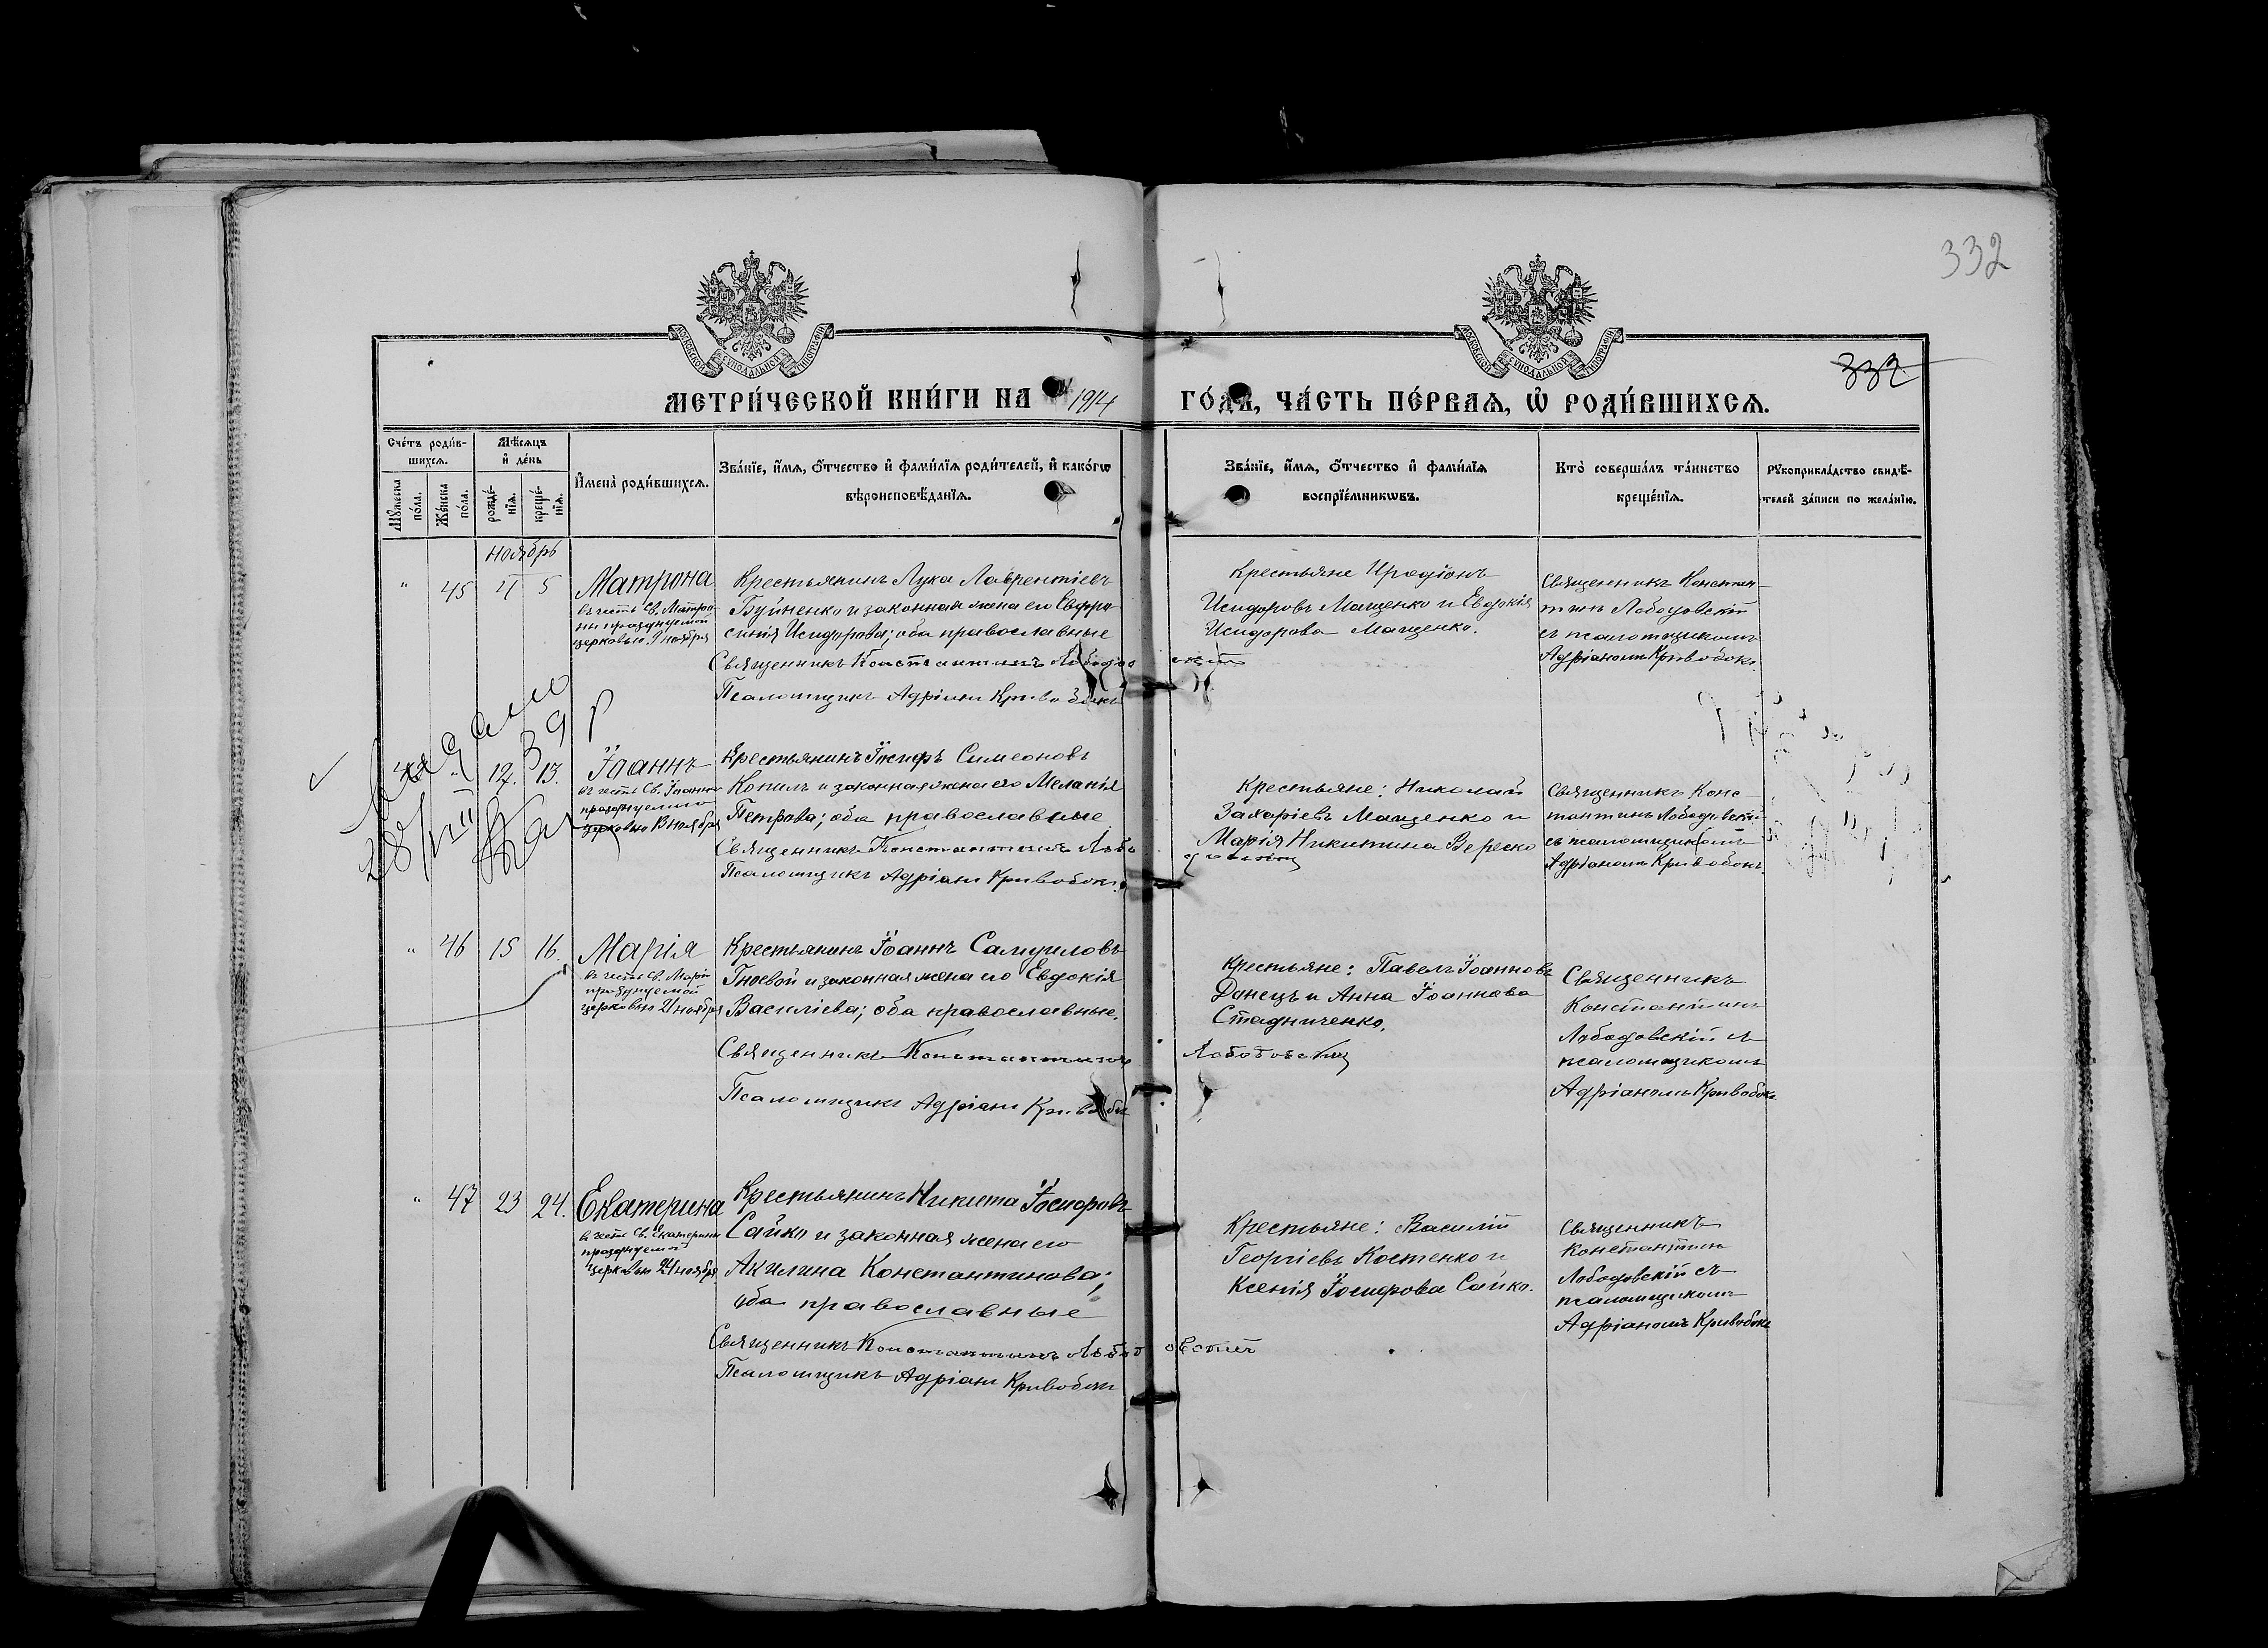 332
МОСКОВСКОЙ СѴНОДАЛЬНОЙ ТИПОГРАФІИ
МОСКОВСКОЙ СѴНОДАЛЬНОЙ ТИПОГРАФІИ
332
МЕТРИ́ЧЕСКОЙ КНИ́ГИ НА 1914 ГО́ДЪ, ЧА́СТЬ ПЕ́РВАѦ, Ѡ҆ РОДИ́ВШИХСѦ.
Сче́тъ роди́в-
шихсѧ.
Мѣ́сѧцъ
и҆ де́нь
Мꙋ́жеска
по́ла.
Же́нска
по́ла.
рожде́-
нїѧ.
креще́-
нїѧ.
И҆мена̀ роди́вшихсѧ.
Зва́нїе, и҆́мѧ, ѻ҆́тчество и҆ фами́лїѧ роди́телей, и҆ како́гѡ
вѣроисповѣ́данїѧ.
Зва́нїе, и҆́мѧ, ѻ҆́тчество и҆ фами́лїѧ
воспрїе́мникѡвъ.
Кто̀ соверша́лъ та́инство
креще́нїѧ.
Рꙋкоприкла́дство свидѣ́-
телей за́писи по жела́нїю.
Ноябрь
" 45 4 5
Матрона
въ честь Св. Матро-
ны празднуемой
церковью 9 ноября
Крестьянинъ Лука Лаврентіевъ
Буйненко и законная жена его Евфро
синія Исидорова; оба православные
Священникъ Константинъ Лободовскій
Псаломщикъ Адріанъ Кривобокъ
Крестьяне Иродіонъ
Исидоровъ Мащенко и Евдокія
Исидорова Мащенко.
Священникъ Констан-
тинъ Лободовскій
съ псаломщикомъ
Адріаномъ Кривобокъ.
12. 13.
Іоаннъ
въ честь Св. Іоанна
празднуемого
церковью 13 ноября
Крестьянинъ Іосифъ Симеоновъ
Копилъ и законная жена его Меланія
Петрова; оба православные
Священникъ Константинъ Лободовскій
Псаломщикъ Адріанъ Кривобокъ.
Крестьяне: Николай
Захаріевъ Мащенко и
Марія Никитина Вереско
Священникъ Конс
тантинъ Лободовскій
съ псаломщикомъ
Адріаномъ Кривобокъ.
" 46 15 16.
Марія
въ честь Св. Маріи
празднуемой
церковью 21 ноября
Крестьянинъ Іоаннъ Самуиловъ
Гноевой и законная жена его Евдокія
Василіева; оба православные.
Священникъ Константинъ Лободовскій
Псаломщикъ Адріанъ Кривобокъ
Крестьяне: Павелъ Іоанновъ
Донецъ и Анна Іоаннова
Стадниченко.
Священникъ
Константинъ
Лободовскій съ
псаломщикомъ
Адріаномъ Кривобокъ
" 47 23 24.
Екатерина
въ честь Св. Екатерины
празднуемой
церковью 24 ноября
Крестьянинъ Никита Іосифовъ
Сайко и законная жена его
Акилина Константинова;
оба православные
Священникъ Константинъ Лободовскій
Псаломщикъ Адріанъ Кривобокъ
Крестьяне: Василій
Георгіевъ Костенко и
Ксенія Іосифова Сайко.
Священникъ
Константинъ
Лободовскій съ
псаломщикомъ
Адріаномъ Кривобокъ